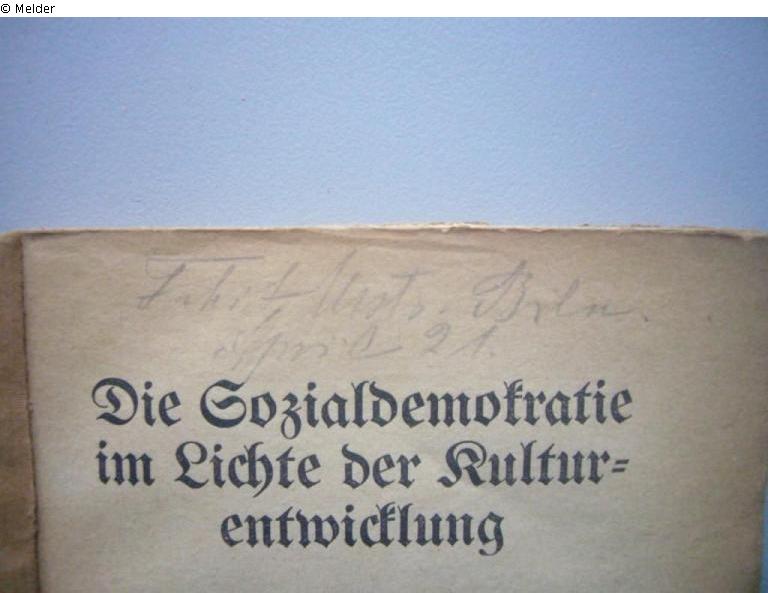 © Melder
April 21.
Die Sozialdemokratie
im Lichte der Kultur=
entwicklung